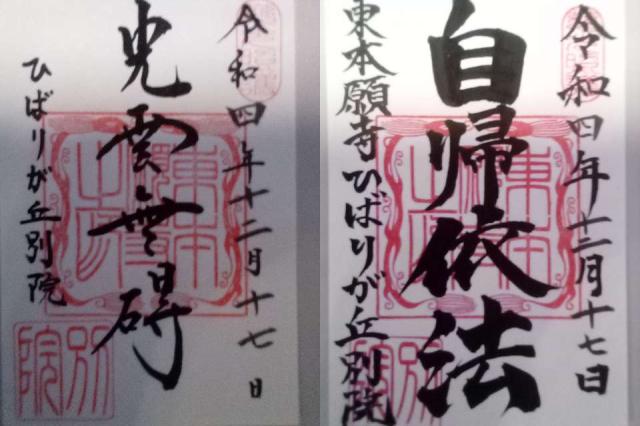 令和四年十二月十七日
光雲無碍
ひばりが丘別院
別院
令和四年十二月十七日
自帰依法
東本願寺ひばりが丘別院